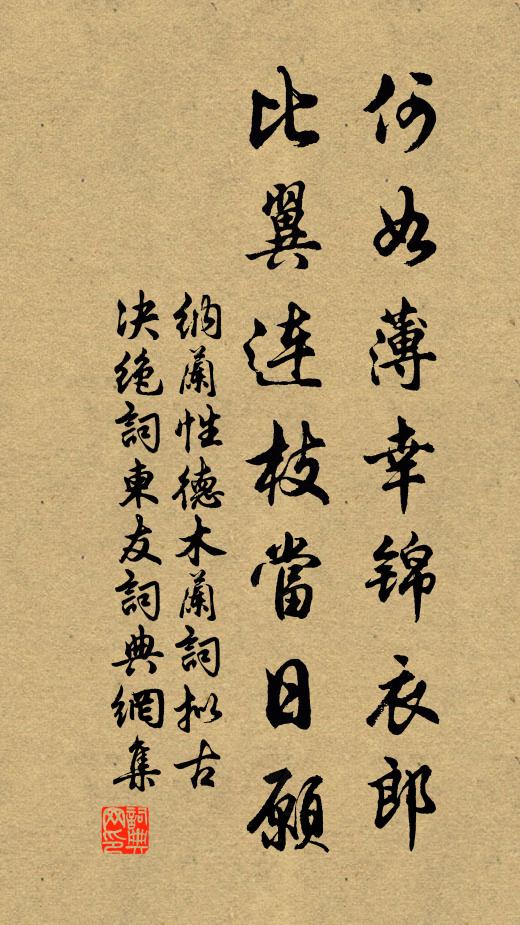 何如薄幸錦衣郎
比翼連枝當日願
納蘭性德木蘭詞拟古
决絶詞東友詞典網集
詞典
网印